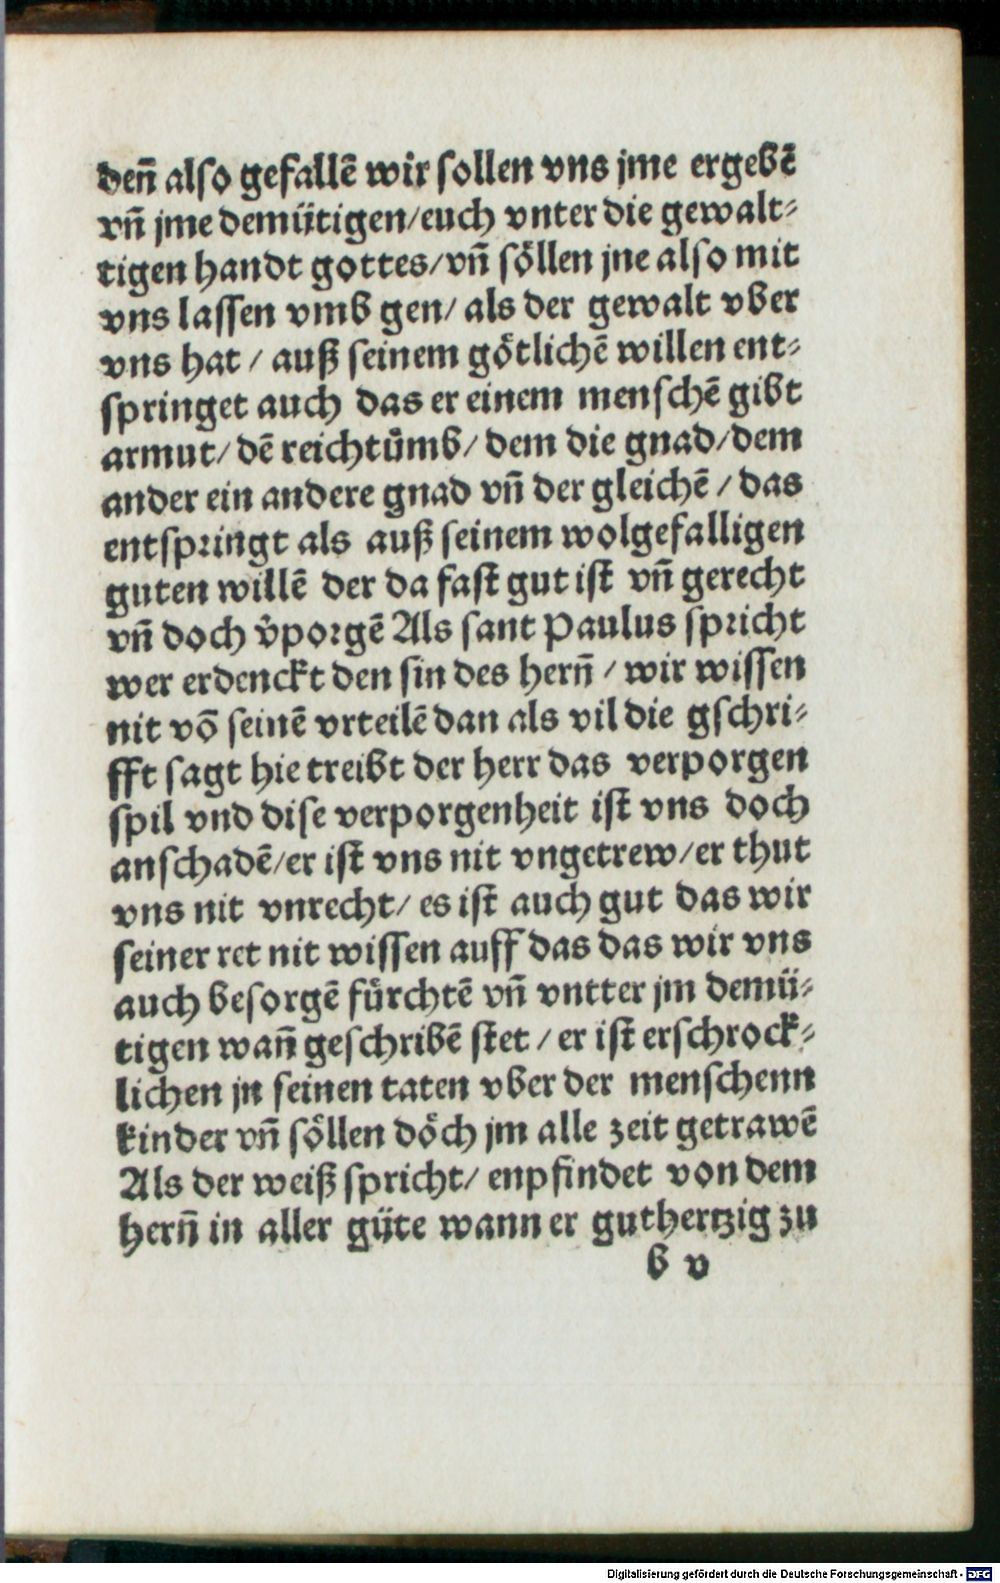 deñ also gefallẽ wir sollen vns jme ergebẽ
vñ jme demütigen/euch vnter die gewalt⸗
tigen handt gottes/vñ söllen jne also mit
vns lassen vmb gen/ als der gewalt vber
vns hat / auß seinem götlichẽ willen ent⸗
springet auch das er einem menschẽ gibt
armut/ dẽ reichtůmb/ dem die gnad/dem
ander ein andere gnad vñ der gleichẽ / das
entspringt als auß seinem wolgefalligen
guten willẽ der da fast gut ist vñ gerecht
vñ doch v̉porgẽ Als sant Paulus spricht
wer erdenckt den sin des herñ / wir wissen
nit võ seinẽ vrteilẽ dan als vil die gschri⸗
fft sagt hie treibt der herr das verporgen
spil vnd dise verporgenheit ist vns doch
anschadẽ/er ist vns nit vngetrew/er thut
vns nit vnrecht/ es ist auch gut das wir
seiner ret nit wissen auff das das wir vns
auch besorgẽ fürchtẽ vñ vntter jm demü⸗
tigen wañ geschribẽ stet / er ist erschrock⸗
lichen jn seinen taten vber der menschenn
kinder vñ söllen döch jm alle zeit getrawẽ
Als der weiß spricht/ enpfindet von dem
herñ in aller güte wann er guthertzig zu
b v
Digitalisierung gefördert durch die Deutsche Forschungsgemeinschaft - DFG